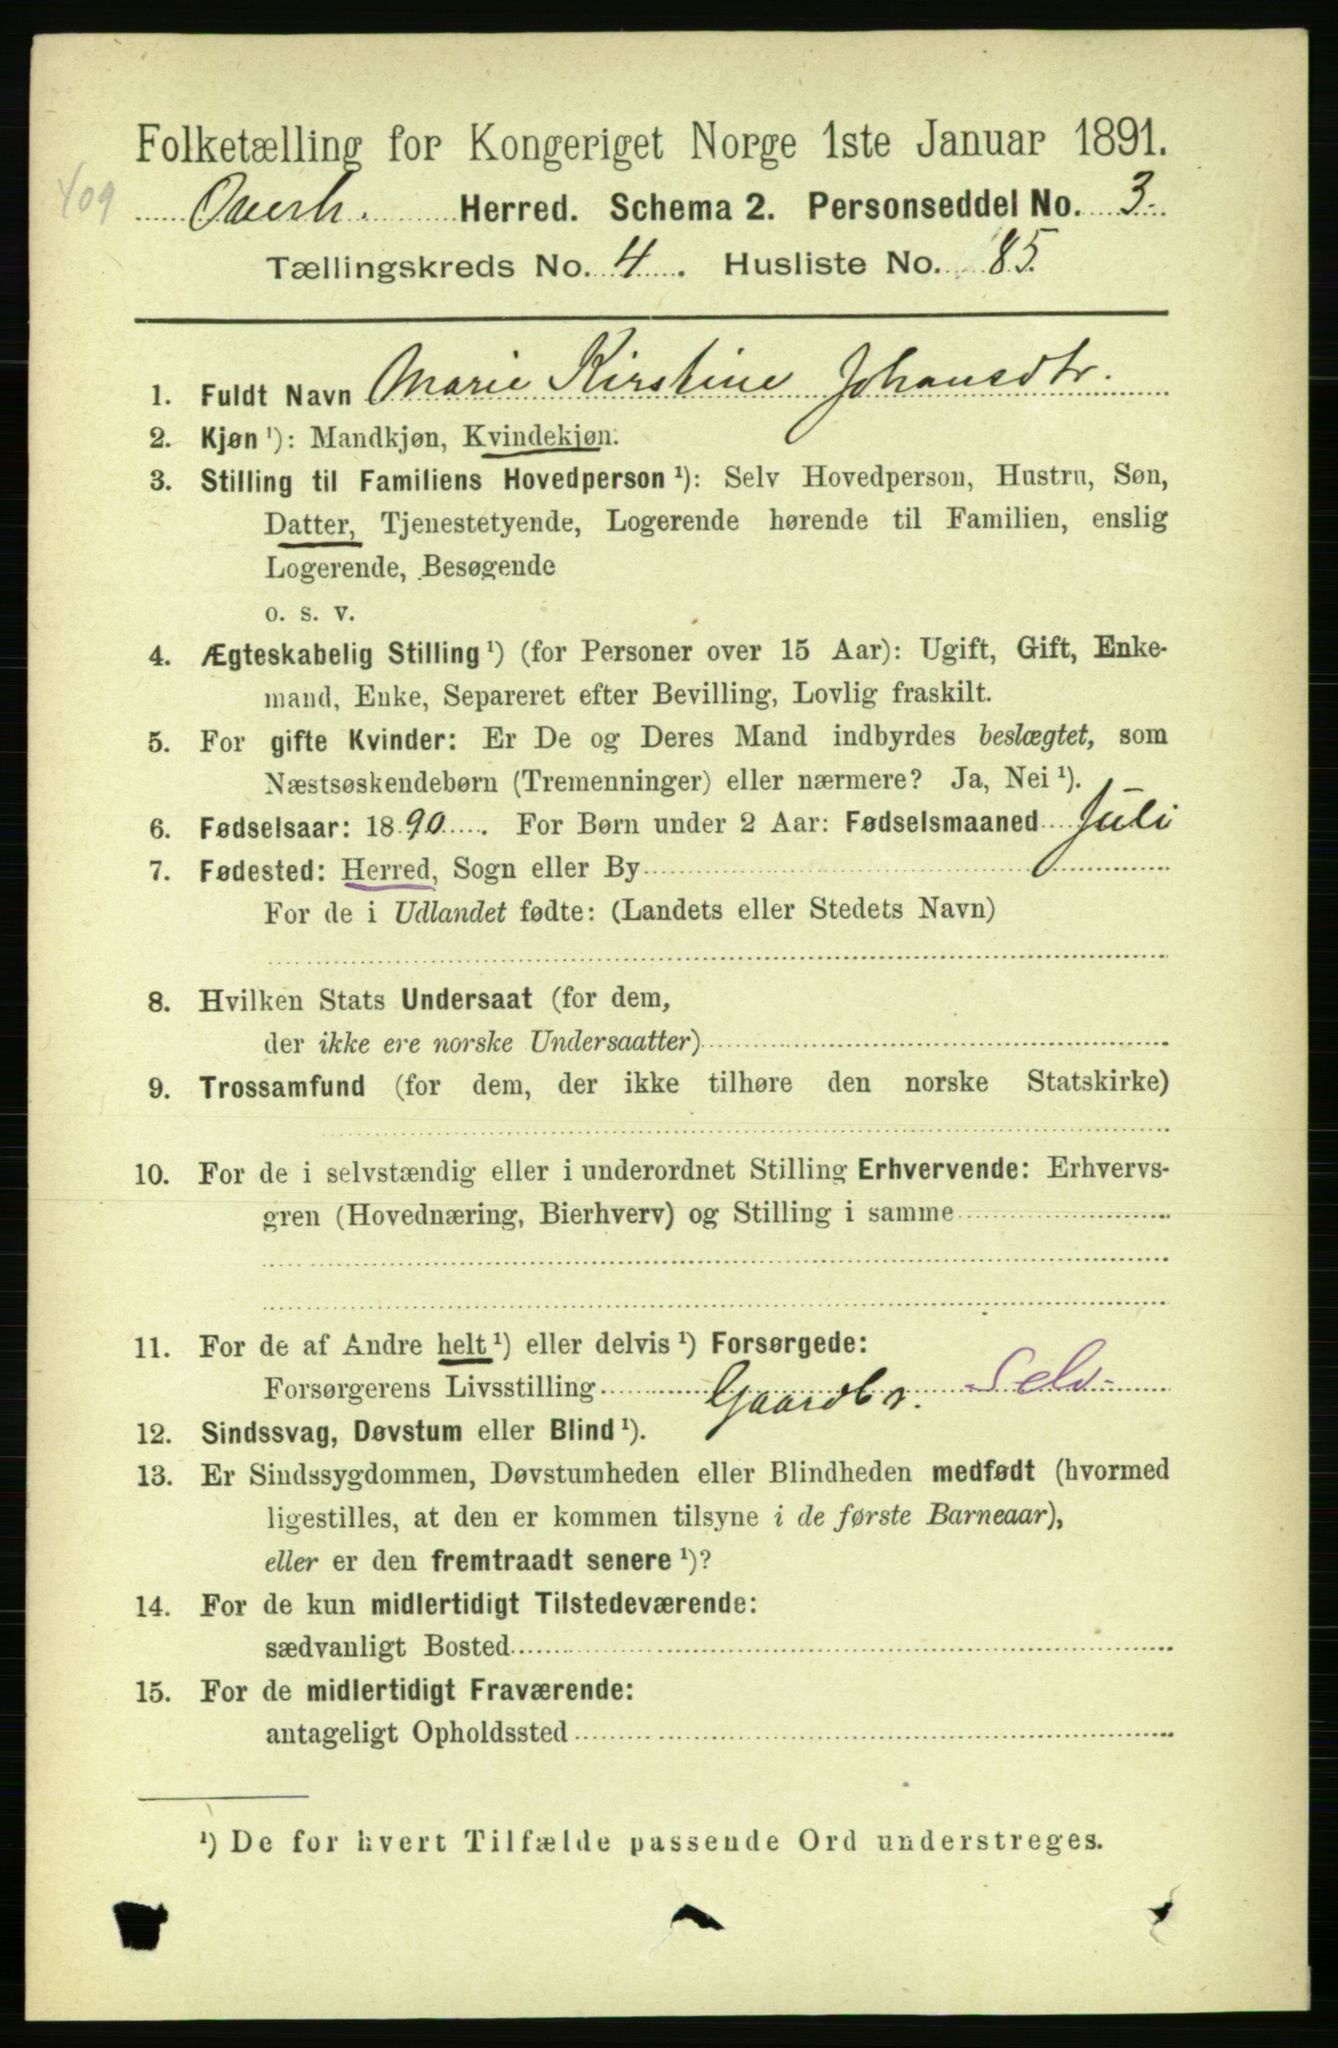 Folketælling for Kongeriget Norge 1ste Januar 1891.
409
Overh. Herred. Schema 2. Personseddel No. 3.
Tællingskreds No. 4. Husliste No. 85.
1. Fuldt Navn Marie Kirstine Johansdtr.
2. Kjøn ¹): Mandkjøn, Kvindekjøn.
3. Stilling til Familiens Hovedperson ¹): Selv Hovedperson, Hustru, Søn,
Datter, Tjenestetyende, Logerende hørende til Familien, enslig
Logerende, Besøgende
o. s. v.
4. Ægteskabelig Stilling ¹) (for Personer over 15 Aar): Ugift, Gift, Enke-
mand, Enke, Separeret efter Bevilling, Lovlig fraskilt.
5. For gifte Kvinder: Er De og Deres Mand indbyrdes beslægtet, som
Næstsøskendebørn (Tremenninger) eller nærmere? Ja, Nei ¹).
6. Fødselsaar: 1890. For Børn under 2 Aar: Fødselsmaaned Juli
7. Fødested: Herred, Sogn eller By
For de i Udlandet fødte: (Landets eller Stedets Navn)
8. Hvilken Stats Undersaat (for dem,
der ikke ere norske Undersaatter)
9. Trossamfund (for dem, der ikke tilhøre den norske Statskirke)
10. For de i selvstændig eller i underordnet Stilling Erhvervende: Erhvervs-
gren (Hovednæring, Bierhverv) og Stilling i samme
11. For de af Andre helt ¹) eller delvis ¹) Forsørgede:
Forsørgerens Livsstilling Gaardbr. Selv-
12. Sindssvag, Døvstum eller Blind ¹).
13. Er Sindssygdommen, Døvstumheden eller Blindheden medfødt (hvormed
ligestilles, at den er kommen tilsyne i de første Barneaar),
eller er den fremtraadt senere ¹)?
14. For de kun midlertidigt Tilstedeværende:
sædvanligt Bosted
15. For de midlertidigt Fraværende:
antageligt Opholdssted
¹) De for hvert Tilfælde passende Ord understreges.